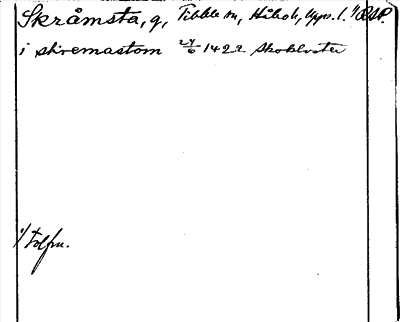 Skråmsta, g, Tibble sn, Håboh, Upps. l. 1) RSP.
i skremastom 24/6 1422 Skokloster
1) Tolfm.